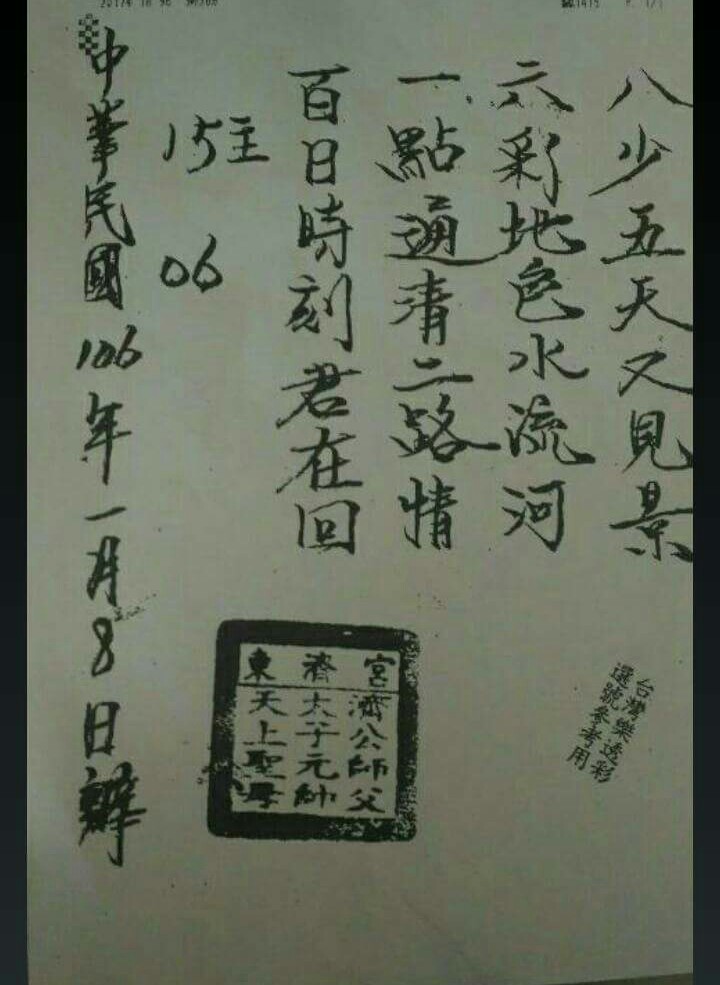 八少五天又見景
六彩地色水流河
一點通清二路情
百日時刻君在回
15主
06
中華民國106年一月8日
東濟宮
濟公師父
太子元帥
天上聖母
台灣樂透彩
選號參考用